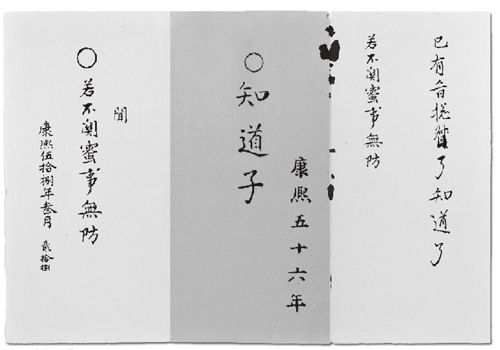 已有旨了知道了
若不関蜜事無防
康熙五十六年
○知道子
○若不関蜜事無防
康熙伍拾捌年叁月 貳拾捌